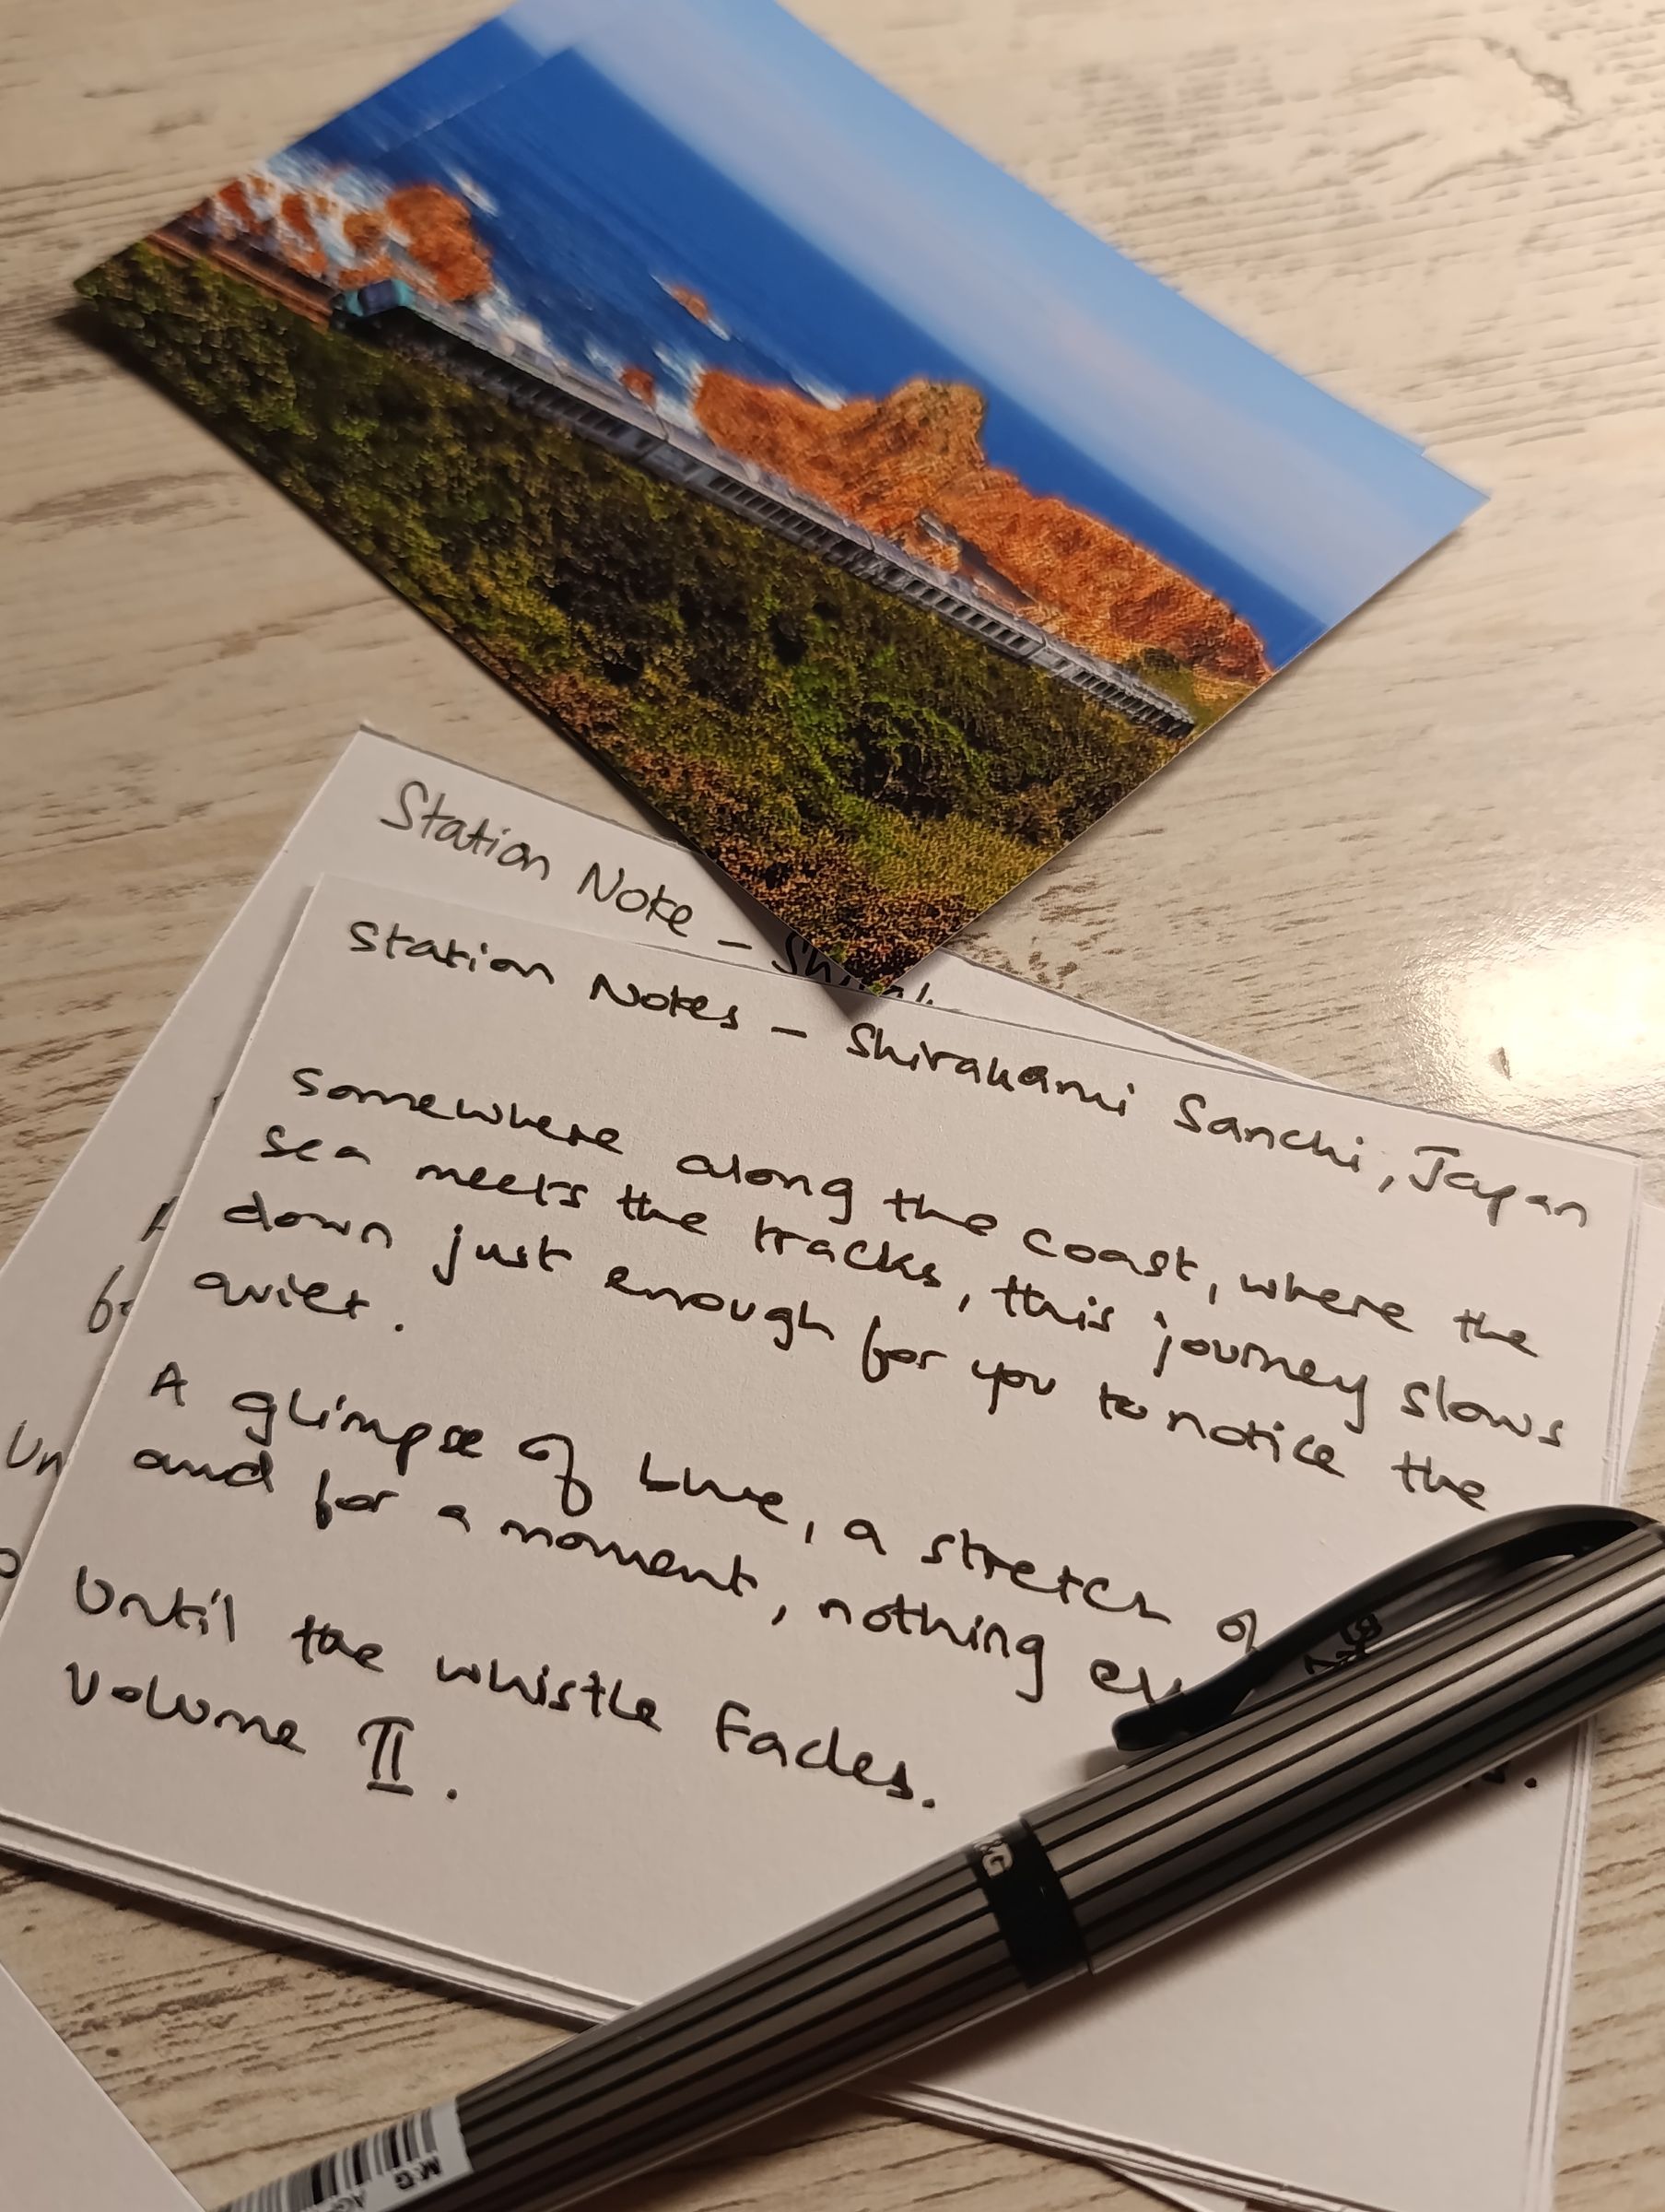 Station Note –
Station Notes – Shirakami Sanchi, Japan
Somewhere along the coast, where the
sea meets the tracks, this journey slows
down just enough for you to notice the
quiet.
A glimpse of blue, a stretch
and for a moment, nothing
Until the whistle Fades.
Volume II.
Un
M&G